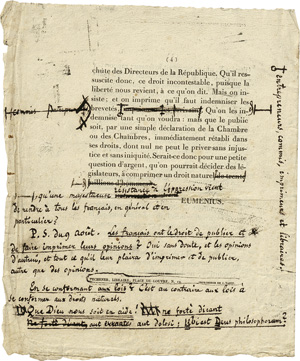 ( 4 )
chute des Directeurs de la République. Qu'il res-
suscite donc, ce droit incontestable, puisque la
liberté nous revient, à ce qu'on dit. Mais on in-
siste; et on imprime qu'il faut indemniser les
brevetés, Qu'on les in-
demnise tant qu'on voudra: mais que le public
soit, par une simple déclaration de la Chambre
ou des Chambres, immédiatement rétabli dans
ses droits, dont nul ne peut le priver sans injus-
tice et sans iniquité. Serait-ce donc pour une petite
question d'argent, qu'on pourrait décider des lé-
gislateurs, à comprimer un droit naturel
qu'une majestueuse vient
EUMENIUS.
de rendre à tous les français, en général et en
particulier?
P. S. Du 9 août. Les français ont le droit de publier et
de faire imprimer leurs opinions. Oui sans doute, et les opinions
d'autrui, et tout ce qu'il leur plaira d'imprimer et de publier,
autre que des opinions.
LIBRAIRE, PLACE DE LOUVRE, N.
En se conformant aux lois. C'est au contraire aux lois à
se conformer aux droits naturels.
Que Dieu nous soit en aide!
Ubi est Deus philosophorum?
entrepreneurs, commis, imprimeurs et libraires